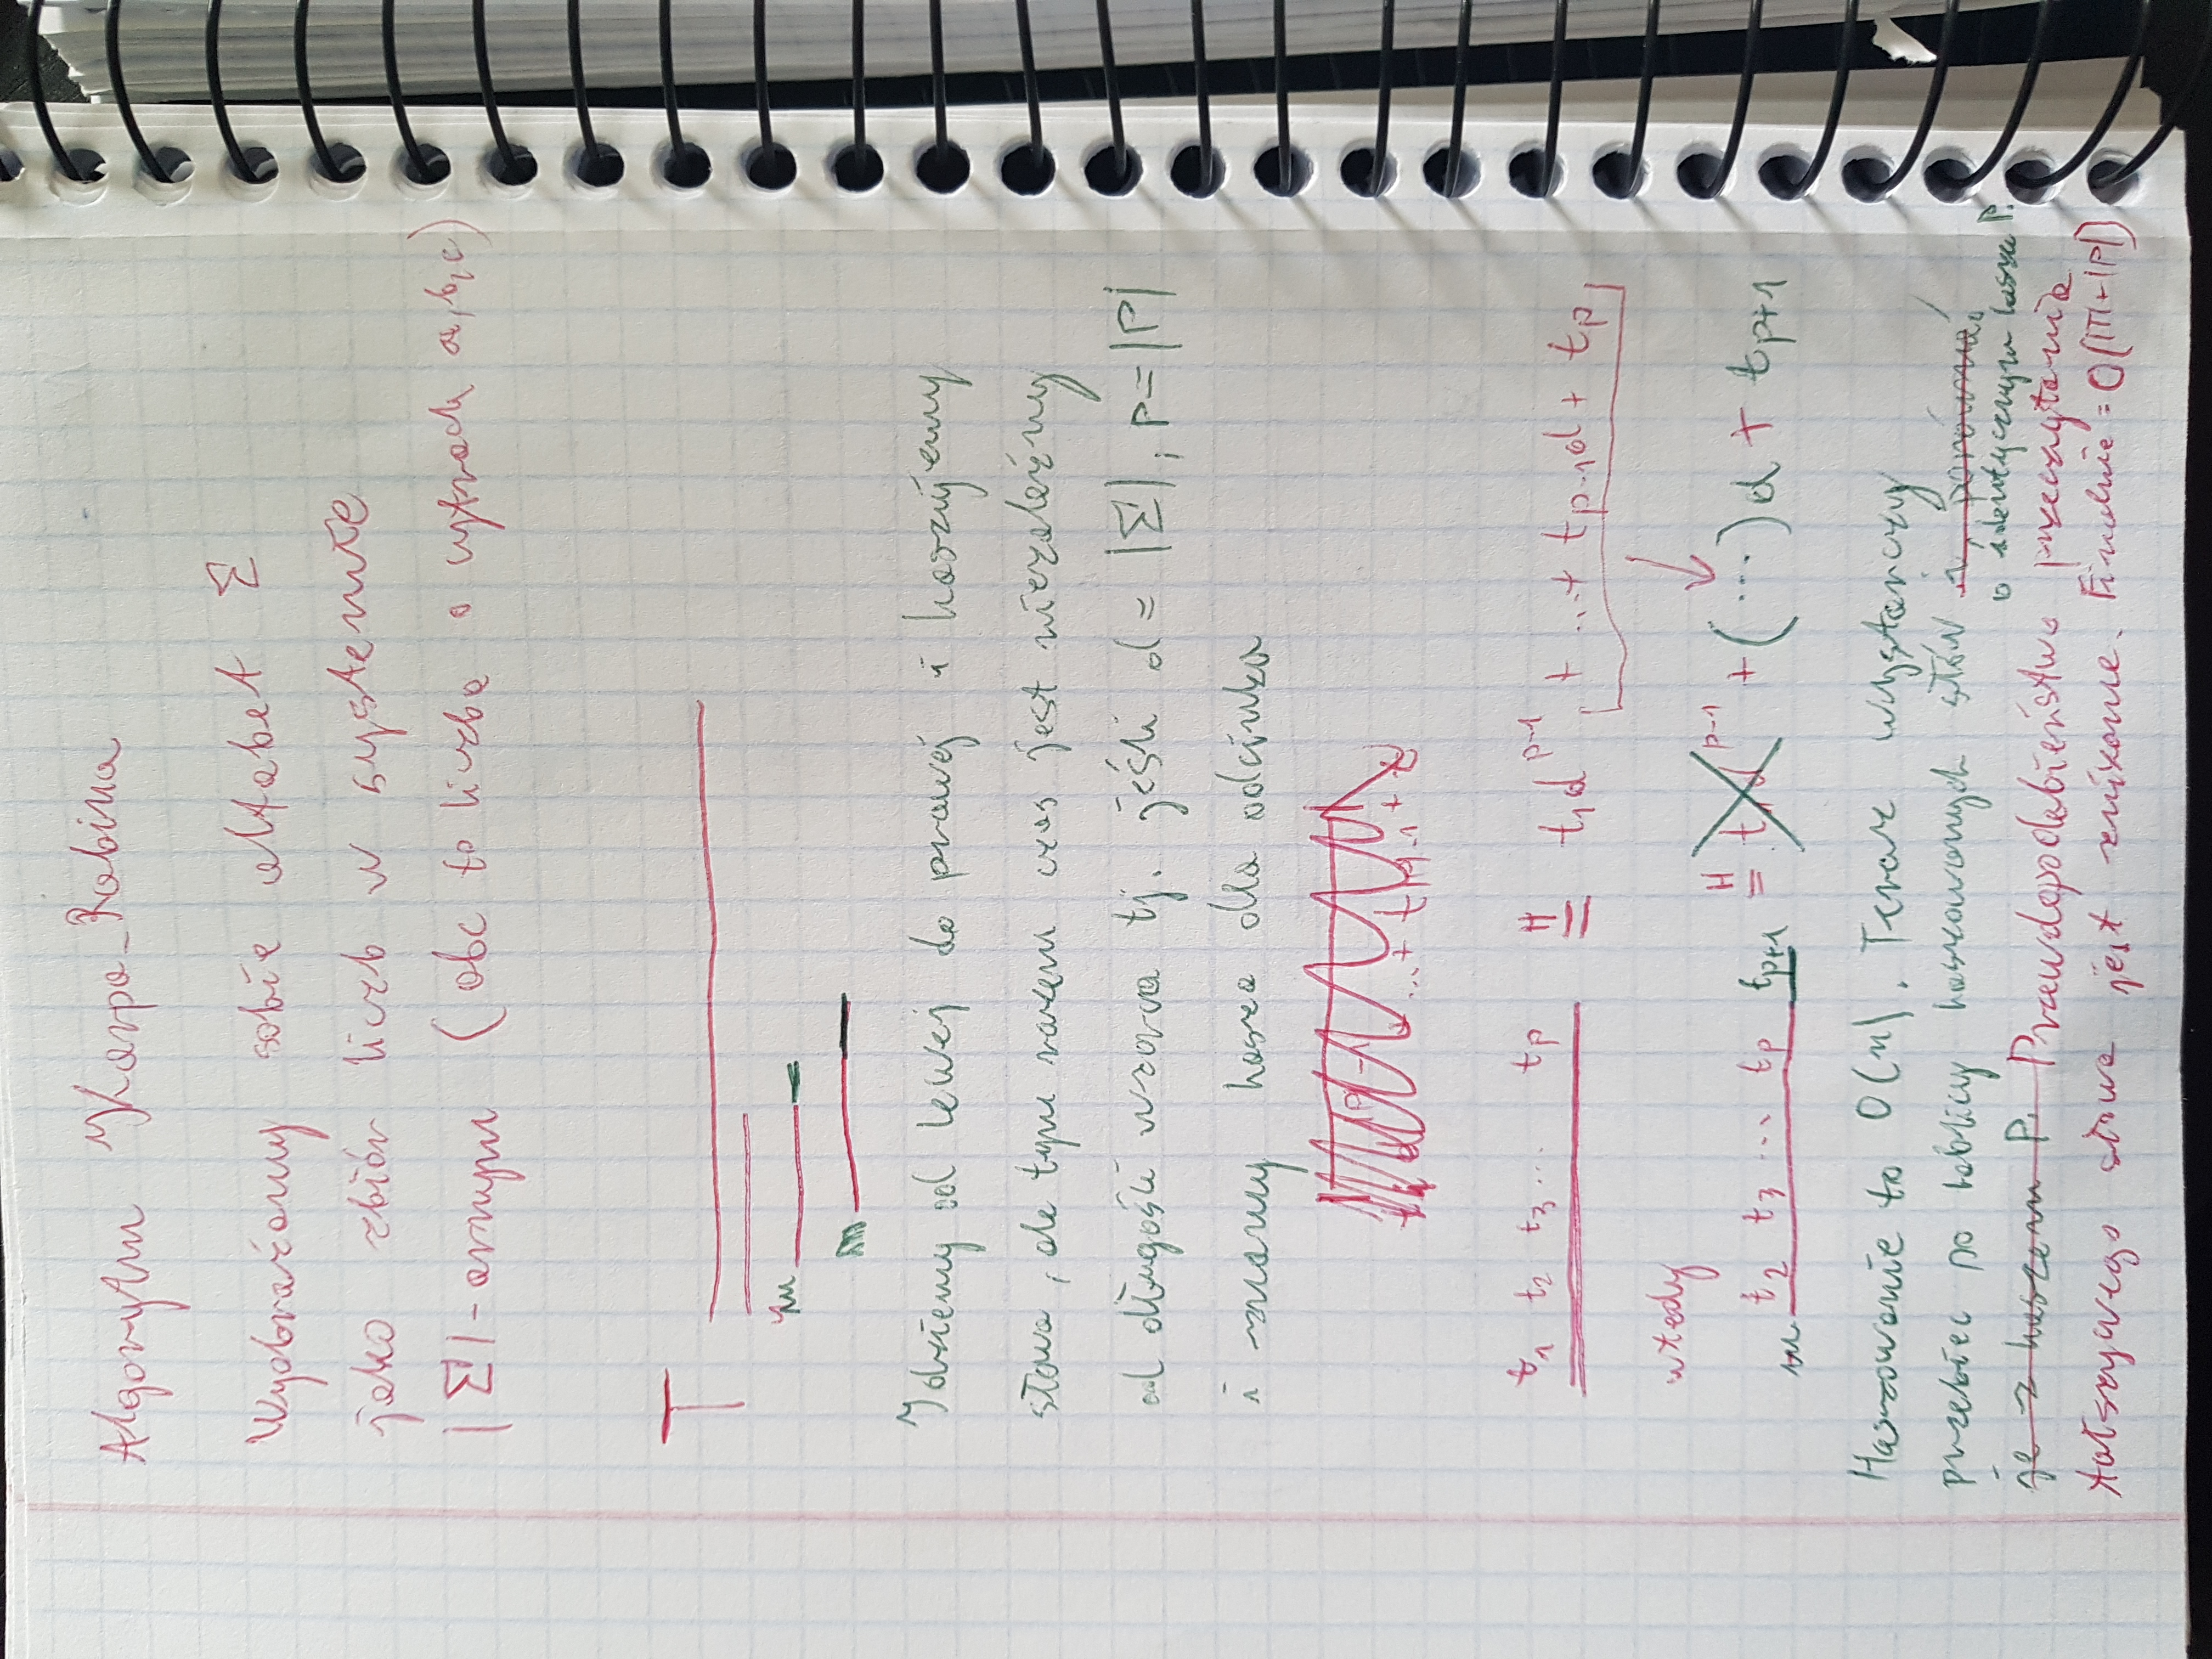 Algorytm Karpa-Rabina
Wyobraźamy sobie alfabet Σ
jako zbiór liczb w systemie
|Σ|-arnym (abc to liczba o cyfrach a,b,c)
T
Idziemy od lewej do prawej i haszujemy
słowa, ale tym razem czas jest niezależny
od długości wzorca tj. jeśli d = |Σ|, p = |P|
i znamy hasza dla odcinka
...+ t
t₁ t₂ t₃ ... tₚ =ᴴ t₁dᵖ⁻¹ + ...+ tₚ₋₁d + tₚ
wtedy
t₂ t₃ ... tₚ tₚ₊₁ =ᴴ t₁dᵖ⁻¹ + (...)d + tₚ₊₁
Haszowanie to O(n). Teraz wystarczy
przebiec po tablicy haszowanych słów
o identycznym haszu P.
że z haszem P. Prawdopodobieństwo przeczytania
fałszywego słowa jest znikome. Finalnie = O(|T|+|P|)